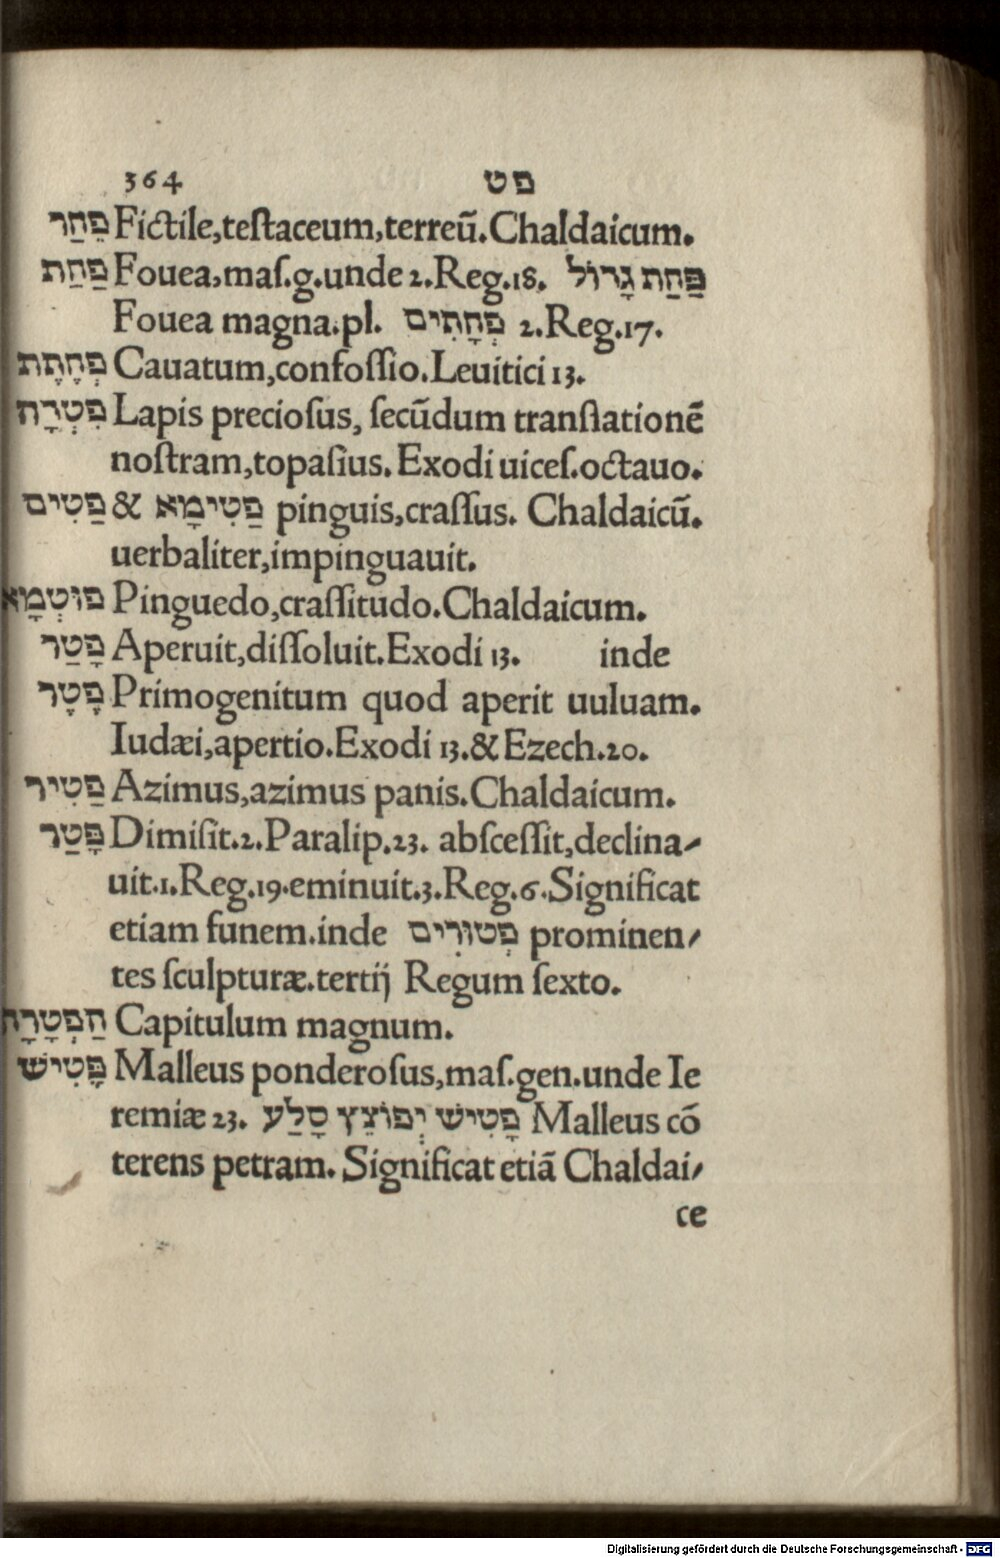 364 פט
פַּחַר Fictile,teſtaceum,terreū.Chaldaicum.
פַּחַת Fouea,maſ.g.unde 2.Reg.18. פַּחַת גָּדוֹל
Fouea magna.pl. פְּחָתִים 2.Reg.17.
פְּחֶתֶת Cauatum,confoſſio.Leuitici 13.
פִּטְדָה Lapis precioſus, ſecūdum tranſlationē
noſtram,topaſius. Exodi uiceſ.octauo.
פַּטִים & פַּטִימָא pinguis,craſſus. Chaldaicū.
uerbaliter,impinguauit.
פוּטְמָא Pinguedo,craſſitudo.Chaldaicum.
פָּטַר Aperuit,diſſoluit.Exodi 13. inde
פֶּטֶר Primogenitum quod aperit uuluam.
Iudæi,apertio.Exodi 13.& Ezech.20.
פַּטִיר Azimus,azimus panis.Chaldaicum.
פָּטַר Dimiſit.2.Paralip.23. abſceſſit,declina-
uit.1.Reg.19.eminuit.3.Reg.6.Significat
etiam funem.inde פְּטוּרִים prominen-
tes ſculpturæ.tertij Regum ſexto.
הַפְטָרָה Capitulum magnum.
פָּטִישׁ Malleus ponderoſus,maſ.gen.unde Ie
remiæ 23. פָּטִישׁ יְפוֹצֵץ סָלַע Malleus cō
terens petram. Significat etiā Chaldai-
ce
Digitalisierung gefördert durch die Deutsche Forschungsgemeinschaft - DFG